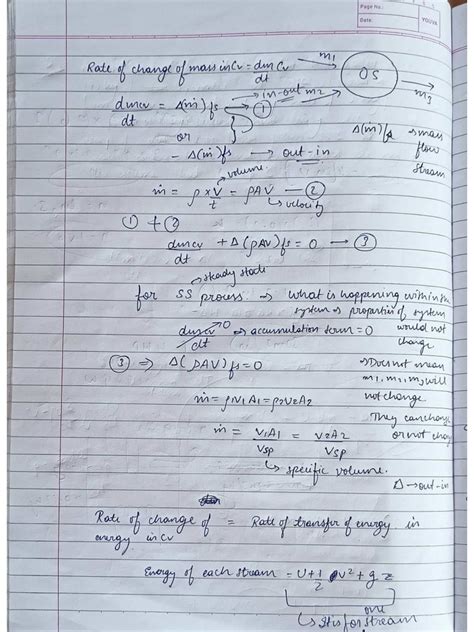 Page No.:
Date:
YOUVA
Rate of change of mass in Cv = dm Cv / dt
m1
OS
m3
dmcv / dt = Δ(ṁ)fs → in-out m2
①
or
- Δ(ṁ)fs → out-in
Δ(ṁ)fs → mass flow stream
volume
ṁ = ρ x V / t = ρAV — ②
↳ velocity
① + ②
dmcv / dt + Δ(ρAV)fs = 0 → ③
→ steady state
for SS process → what is happening within the
system → properties of system
would not
change
dmcv / dt 0 → accumulation term = 0
③ ⇒ Δ(ρAV)fs = 0
→ Does not mean
m1, m2, m3 will
not change
ṁ = ρ1V1A1 = ρ2V2A2
They can change
or not change
ṁ = V1A1 / Vsp = V2A2 / Vsp
↳ specific volume.
Δ → out-in
Rate of change of energy in Cv = Rate of transfer of energy in
Energy of each stream = U + 1/2 V² + gz
one
↳ It is for stream